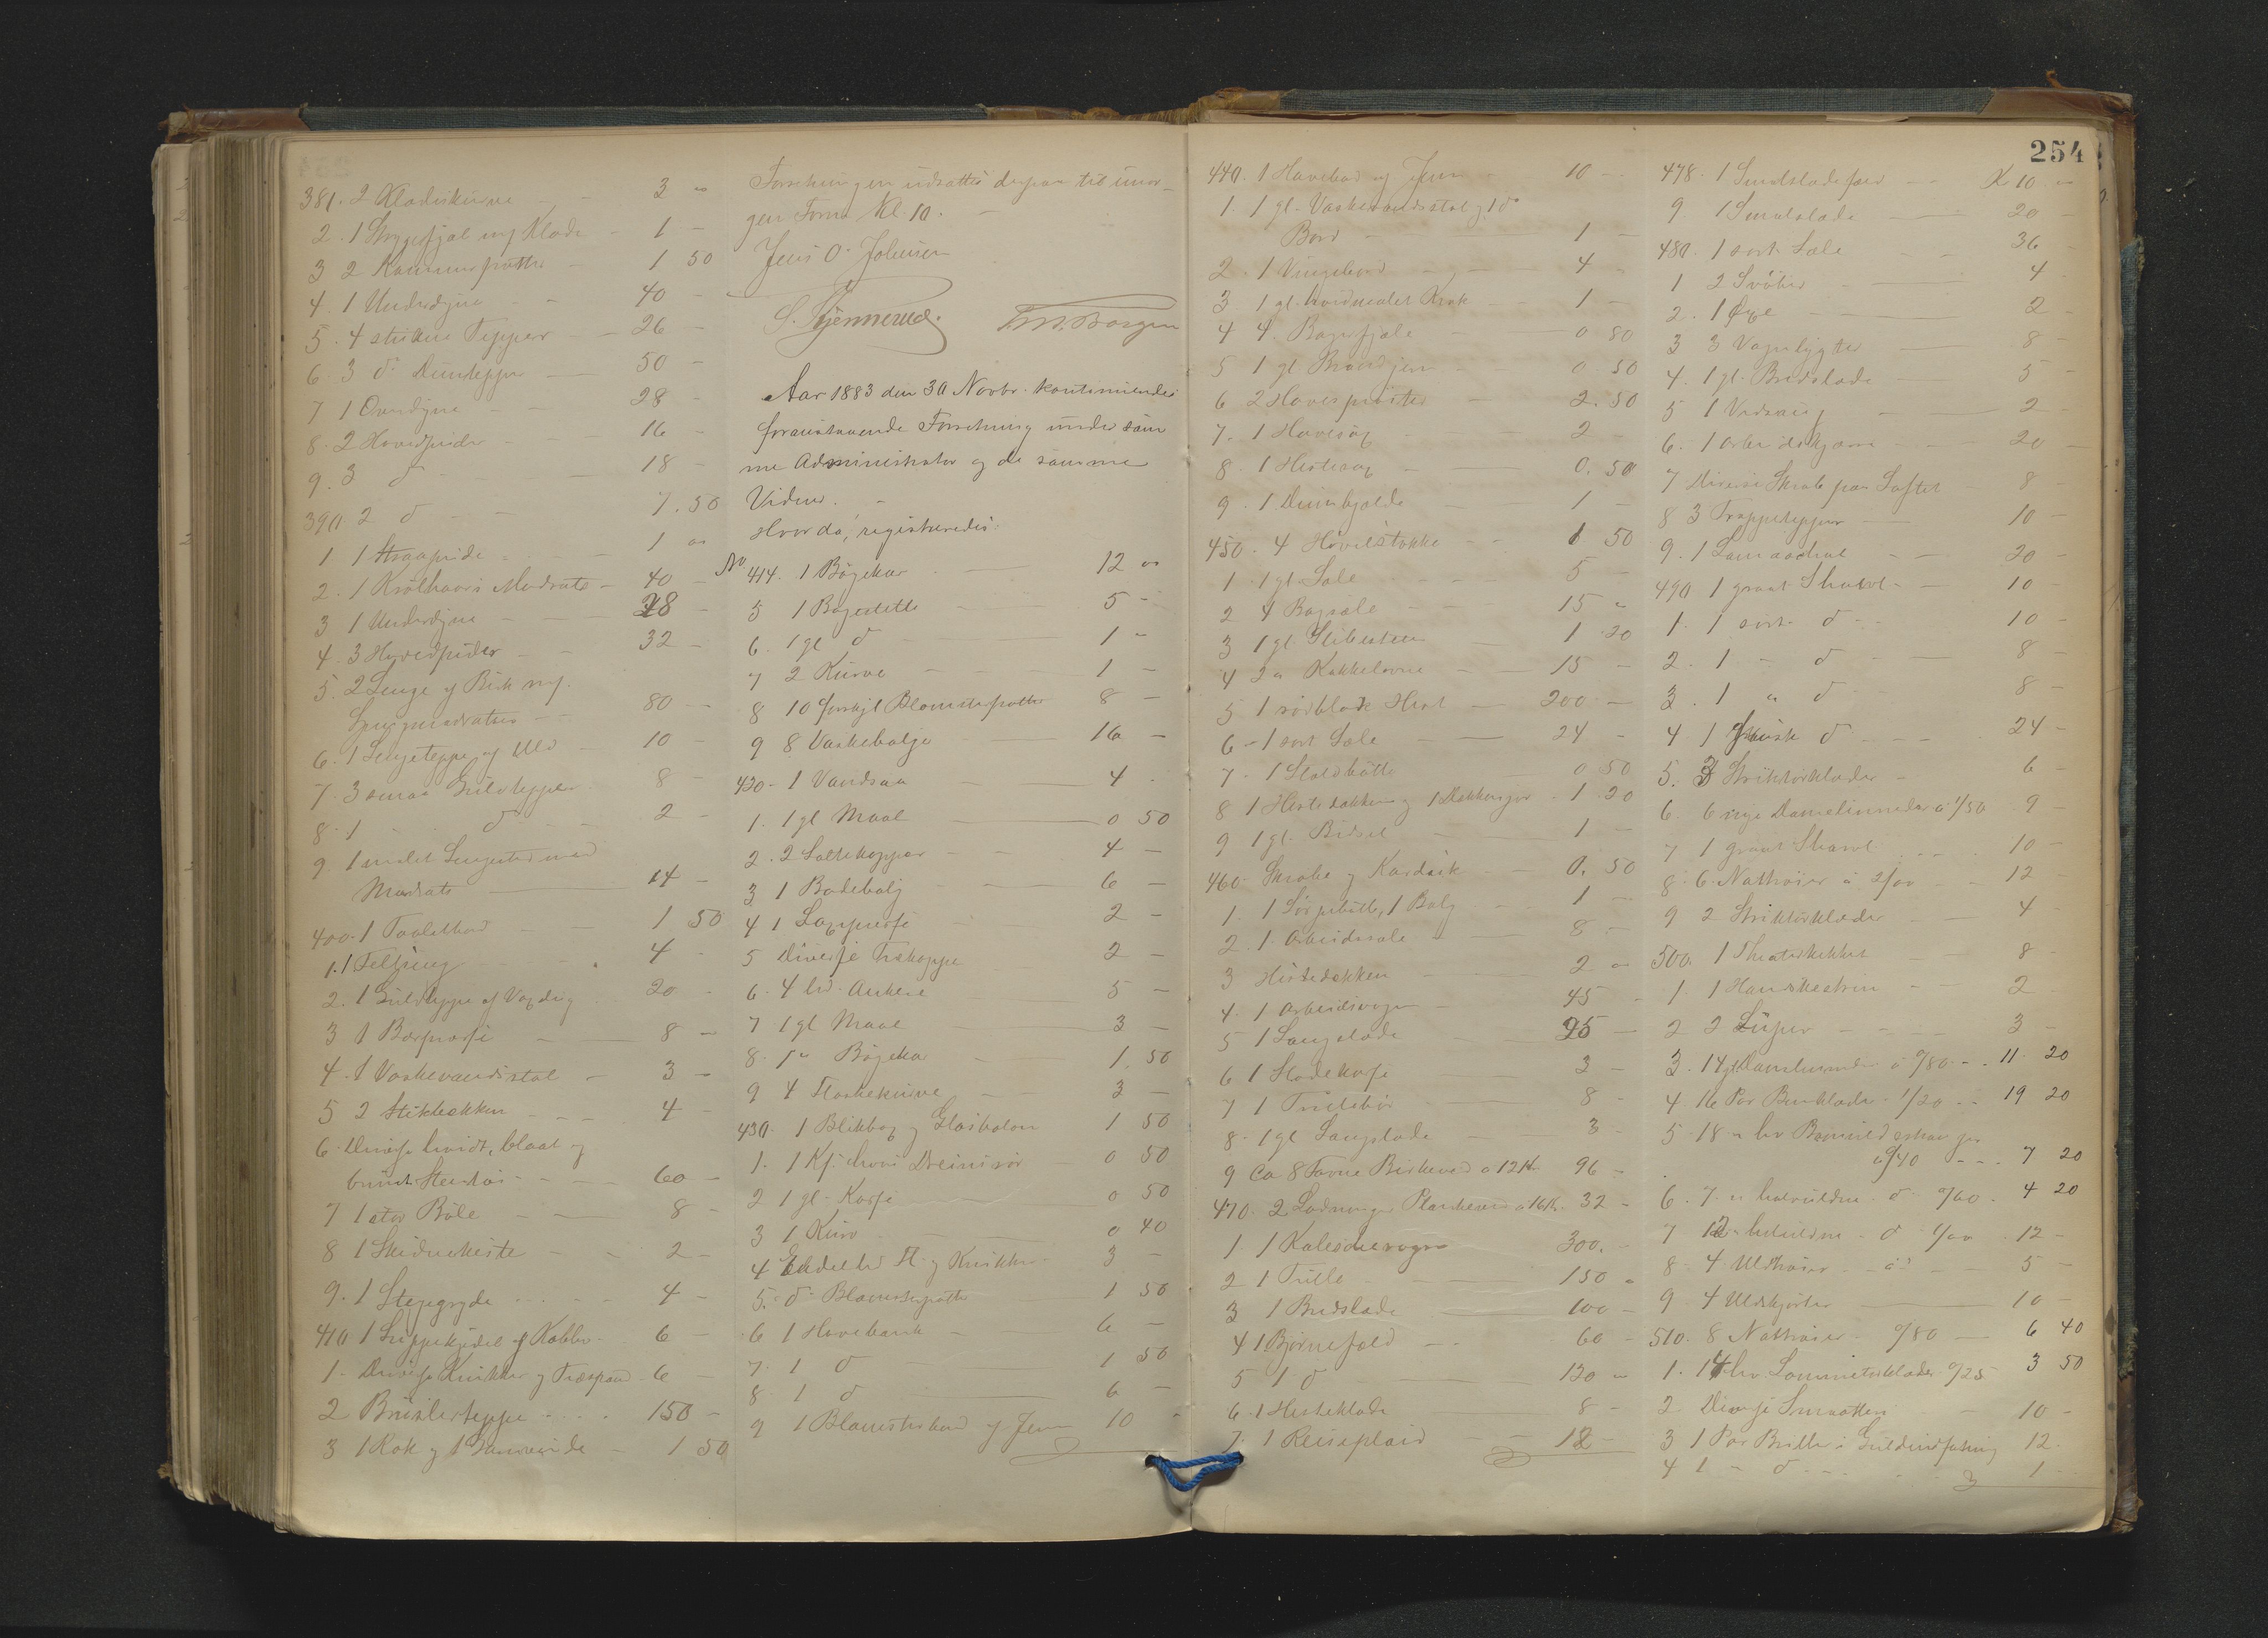 381. 2 Klædeskurve - - 3 "
2. 1 Strygefjæl m/ Klæde - 1 -
3 2 Kammerpotter - 1 50
4. 1 Underdyne - - 40 -
5. 4 Tepper - 26 -
6. 3 do Duntepper - 50 -
7 1 Overdyne - - 28 -
8. 2 Hovedpuder - - 16 -
9. 3 do - - 18 -
390 2 do - - 7. 50
1 1 Straapude - - 1 "
2. 1 Krølhaars Madrats - 40 -
3 1 Underdyne - - 28 -
4. 3 Hovedpuder - - 32 -
5. 2 Senge af Birk m/
80 -
6. 1 Sengeteppe af Uld - 10 -
7. 3 smaa Gulvtepper - 8 -
8. 1 - do - - 2 -
9. 1 malet Sengested med
Madrats - 14 -
400. 1 Toiletbord - - 1 50
1. 1 Feltseng - - 4 -
2. 1 Gulvteppe af Voxdug 20 -
3 1 - 8 -
4. 1 Vaskevandsstol - 3 -
5 2 Stikbekken - - 4 -
6. Diverse hvidt, blaat og
brunt Stentøi - - 60 -
7 1 stor Bøle - 8 -
8 1 Skidnekiste - - 2 -
9. 1 Stegegryde - - 4 -
410 1 af Kobber - 6 -
1. Diverse Krukker og Træspand - 6 -
2 Brüsler teppe - - 150 -
3 1 Rok og 1 - 1 50
Forretningen udsattes derpaa til imor-
gen Form. Kl. 10. -
Jens O. Johnsen
S. Stjennerud. M. Borgen
Aar 1883 den 30 Novbr. kontinueredes
foranstaaende Forretning under sam
me Administrator og de samme
Vidner. -
Hvor da, registreredes:
No 414. 1 Bøgekar - 12 "
5 1 Bøgebøtte - 5 -
6. 1 gl do - 1 "
7 2 Kurve - 1 -
8 10 forskjl Blomsterpotter 8 -
9 8 Vaskebalje - 16 -
420 - 1 Vandsaa - 4 -
1. 1 gl Maal - 0 50
2. 2 Saltekopper - - 4 -
3 1 Badebalj - - 6 -
4 1 - 2 -
5 Diverse Trækopper - 2 -
6. 4 hel. Ankere - 5 -
7 1 gl Maal - 3 -
8. 1 " Bøgekar - 1. 50
9 4 Flaskekurve - - 3 -
430. 1 Blikbox og Glaskolon 1 50
1. 1 Kj. - 0 50
2 1 gl. Kasse - 0 50
3 1 Kurv - 0 40
4 Endel hel Fl. og Krukker - 3 -
5. do Blomsterpotter 1 50
6 1 Havebænk - 6 -
7. 1 do - 1 50
8. 1 do - 6 -
9 1 Blomsterbord af Jern 10 -
440. 1 Havebord af Jern - 10 -
1. 1 gl. Vaskevandsstol og 1 do
Bord - 1 -
2. 1 Vingebord - - 4 -
3 1 gl. hvidmalet Krak - - 1 -
4 4. Bagefjæle - 0 80
5 1 gl Brændjern - 0. 50
6 2 Havesprøiter - 2. 50
7. 1 Havesax - 2 -
8. 1 Hestesax - 0. 50
9. 1 Dumbjelde - 1 -
450. 4 Hövelstokke - - 1 50
1. 1 gl. Sæle - 5 -
2 4 Bogsæle - - 15 "
3 1 gl. Slibesteen - 1 20
4 2 " Kakkelovne - 15 -
5 1 rødblak Hest - 200 -
6 - 1 sort Sæle - - 24 -
7 - 1 Staldbøtte - 0 50
8 1 Hestedækken og 1 Dækkengjor - 1. 20
9 1 gl. Bidsel - 1 -
460. Skrabe og Kardæsk - - 0. 50
1. 1 Sørpebøtte, 1 Balg - - 1 -
2. 1. Arbeidssæle - - 8 -
3 Hestedækken - 2 "
4. 1 Arbeidsvogn - 45 -
5 1 Langslæde - 25 -
6 1 - 3 -
7 1 Trillebør - 8 -
8. 1 gl Langslæde - 3 -
9 Ca 8 Favne Birkeved a 12 Kr. 96 -
470. 2 Ladninger Plankeved a 16 Kr. 32 -
1 1 Kaleschevogn 300. -
2 1 Trille - 150 "
3 1 Bredslæde - 100 -
4 1 Bjørnefeld - 60 -
5 1 do - 120 "
6. 1 Hesteklæde - 8 -
7. 1 Reiseplaid - - 12 -
254
478. 1 - - Kr 10 "
9 1 Smalslæde - 20 -
480. 1 sort Sæle - - 36 -
1 2 Svøber - 4 -
2. 1 Øxe - 2 -
3 3 Vognlygter - 8 -
4. 1 gl. Bredslæde - 5 -
5 1 Vedsaug - 2 -
6. 1 Arbeidskjærre - - 20 -
7 Diverse Skrab paa Loftet - 8 -
8 3 Trappetepper - 10 -
9. 1 - - 20 -
490 1 graat Shawl - - 10 -
1. 1 sort do - - 10 -
2. 1 - do - 8 -
3. 1 " do - 8 -
4 1 do - - 24 -
5. 3 Striktørklæder - 6 -
6. 6 nye Damelinneder a 1/50 9 -
7 1 graat Shawl - 10 -
8. 6 Nattrøier a 2/00 - 12 -
9 2 Striktørklæder - 4 -
500. 1 Theaterkikkert - - 8 -
1. 1 Handskeskrin - - 2 -
2 2 - - - 3 -
3. 14 gl Damelinneder a 0/80 - - 11 20
4. 16 Par Benklæder 1/20 - - 19 20
5 18 " hv Bomuldsstrømper
a 0/40 - - - 7 20
6. 7 " halvuldne do 0/60 - 4 20
7 12 " heluldne - do 1/00 - 12 -
8. 4 Uldtrøier - - - 5 -
9 4 Uldskjorter - 10 -
510. 8 Nattrøier - 0/80 - 6 40
1. 14 hv. Lommetørklæder 0/25 3 50
2 Diverse Smaatteri - 10 -
3 1 Par Briller i Guldindfatning 12.
4 1 " do - - 1 -